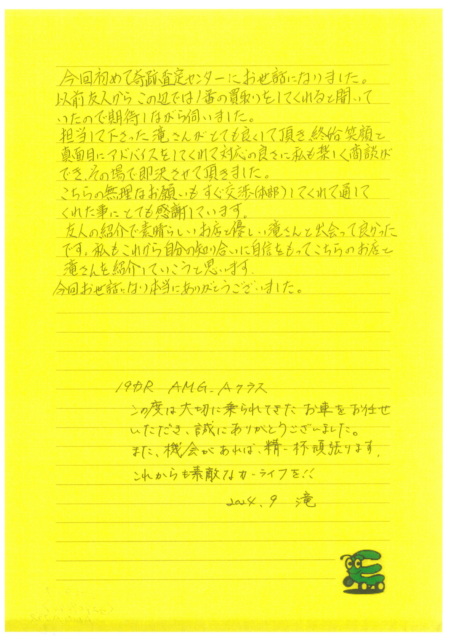 今回初めて奇跡査定センターにお世話になりました。
以前友人からこの辺では1番の買取りをしてくれると聞いて
いたので期待しながら伺いました。
担当して下さった滝さんがとても良くして頂き、終始笑顔と
真面目にアドバイスをしてくれて対応の良さに私も楽しく商談が
でき、その場で即決させて頂きました。
こちらの無理なお願いもすぐ交渉(本部)してくれて通して
くれた事にとても感謝しています。
友人の紹介で素晴らしいお店と優しい滝さんと出会って良かった
です。私もこれから自分の知り合いに自信をもってこちらのお店と
滝さんを紹介していこうと思います。
今回お世話になり本当にありがとうございました。
AMG Aクラス
この度は大切に乗られてきたお車をお任せ
いただき、誠にありがとうございました。
また、機会があれば、精一杯頑張ります。
これからも素敵なカーライフを!!
2024.9 滝